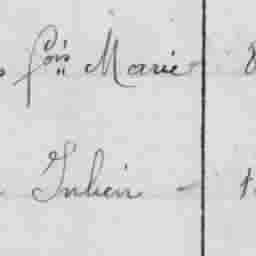 fçois Marie
Julien